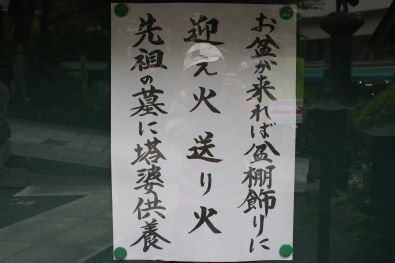 お盆が来れば盆棚飾りに
迎え火送り火
先祖の墓に塔婆供養